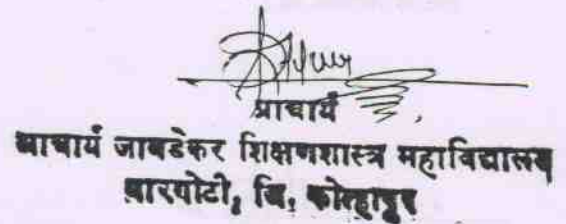 प्राचार्य
आचार्य जावडेकर शिक्षणशास्त्र महाविद्यालय
गारगोटी, जि. कोल्हापूर